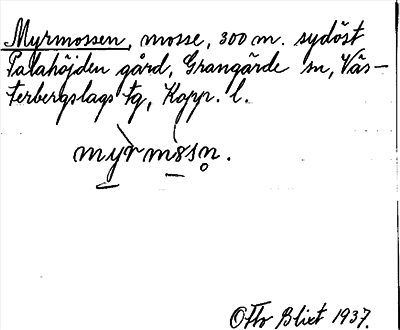 Myrmossen, mosse, 300 m. sydöst
Palahöjden gård, Grangärde sn, Väs-
terbergslags tg, Kopp. l.
my̱r mo̱sn̥.
Otto Blixt 1937.